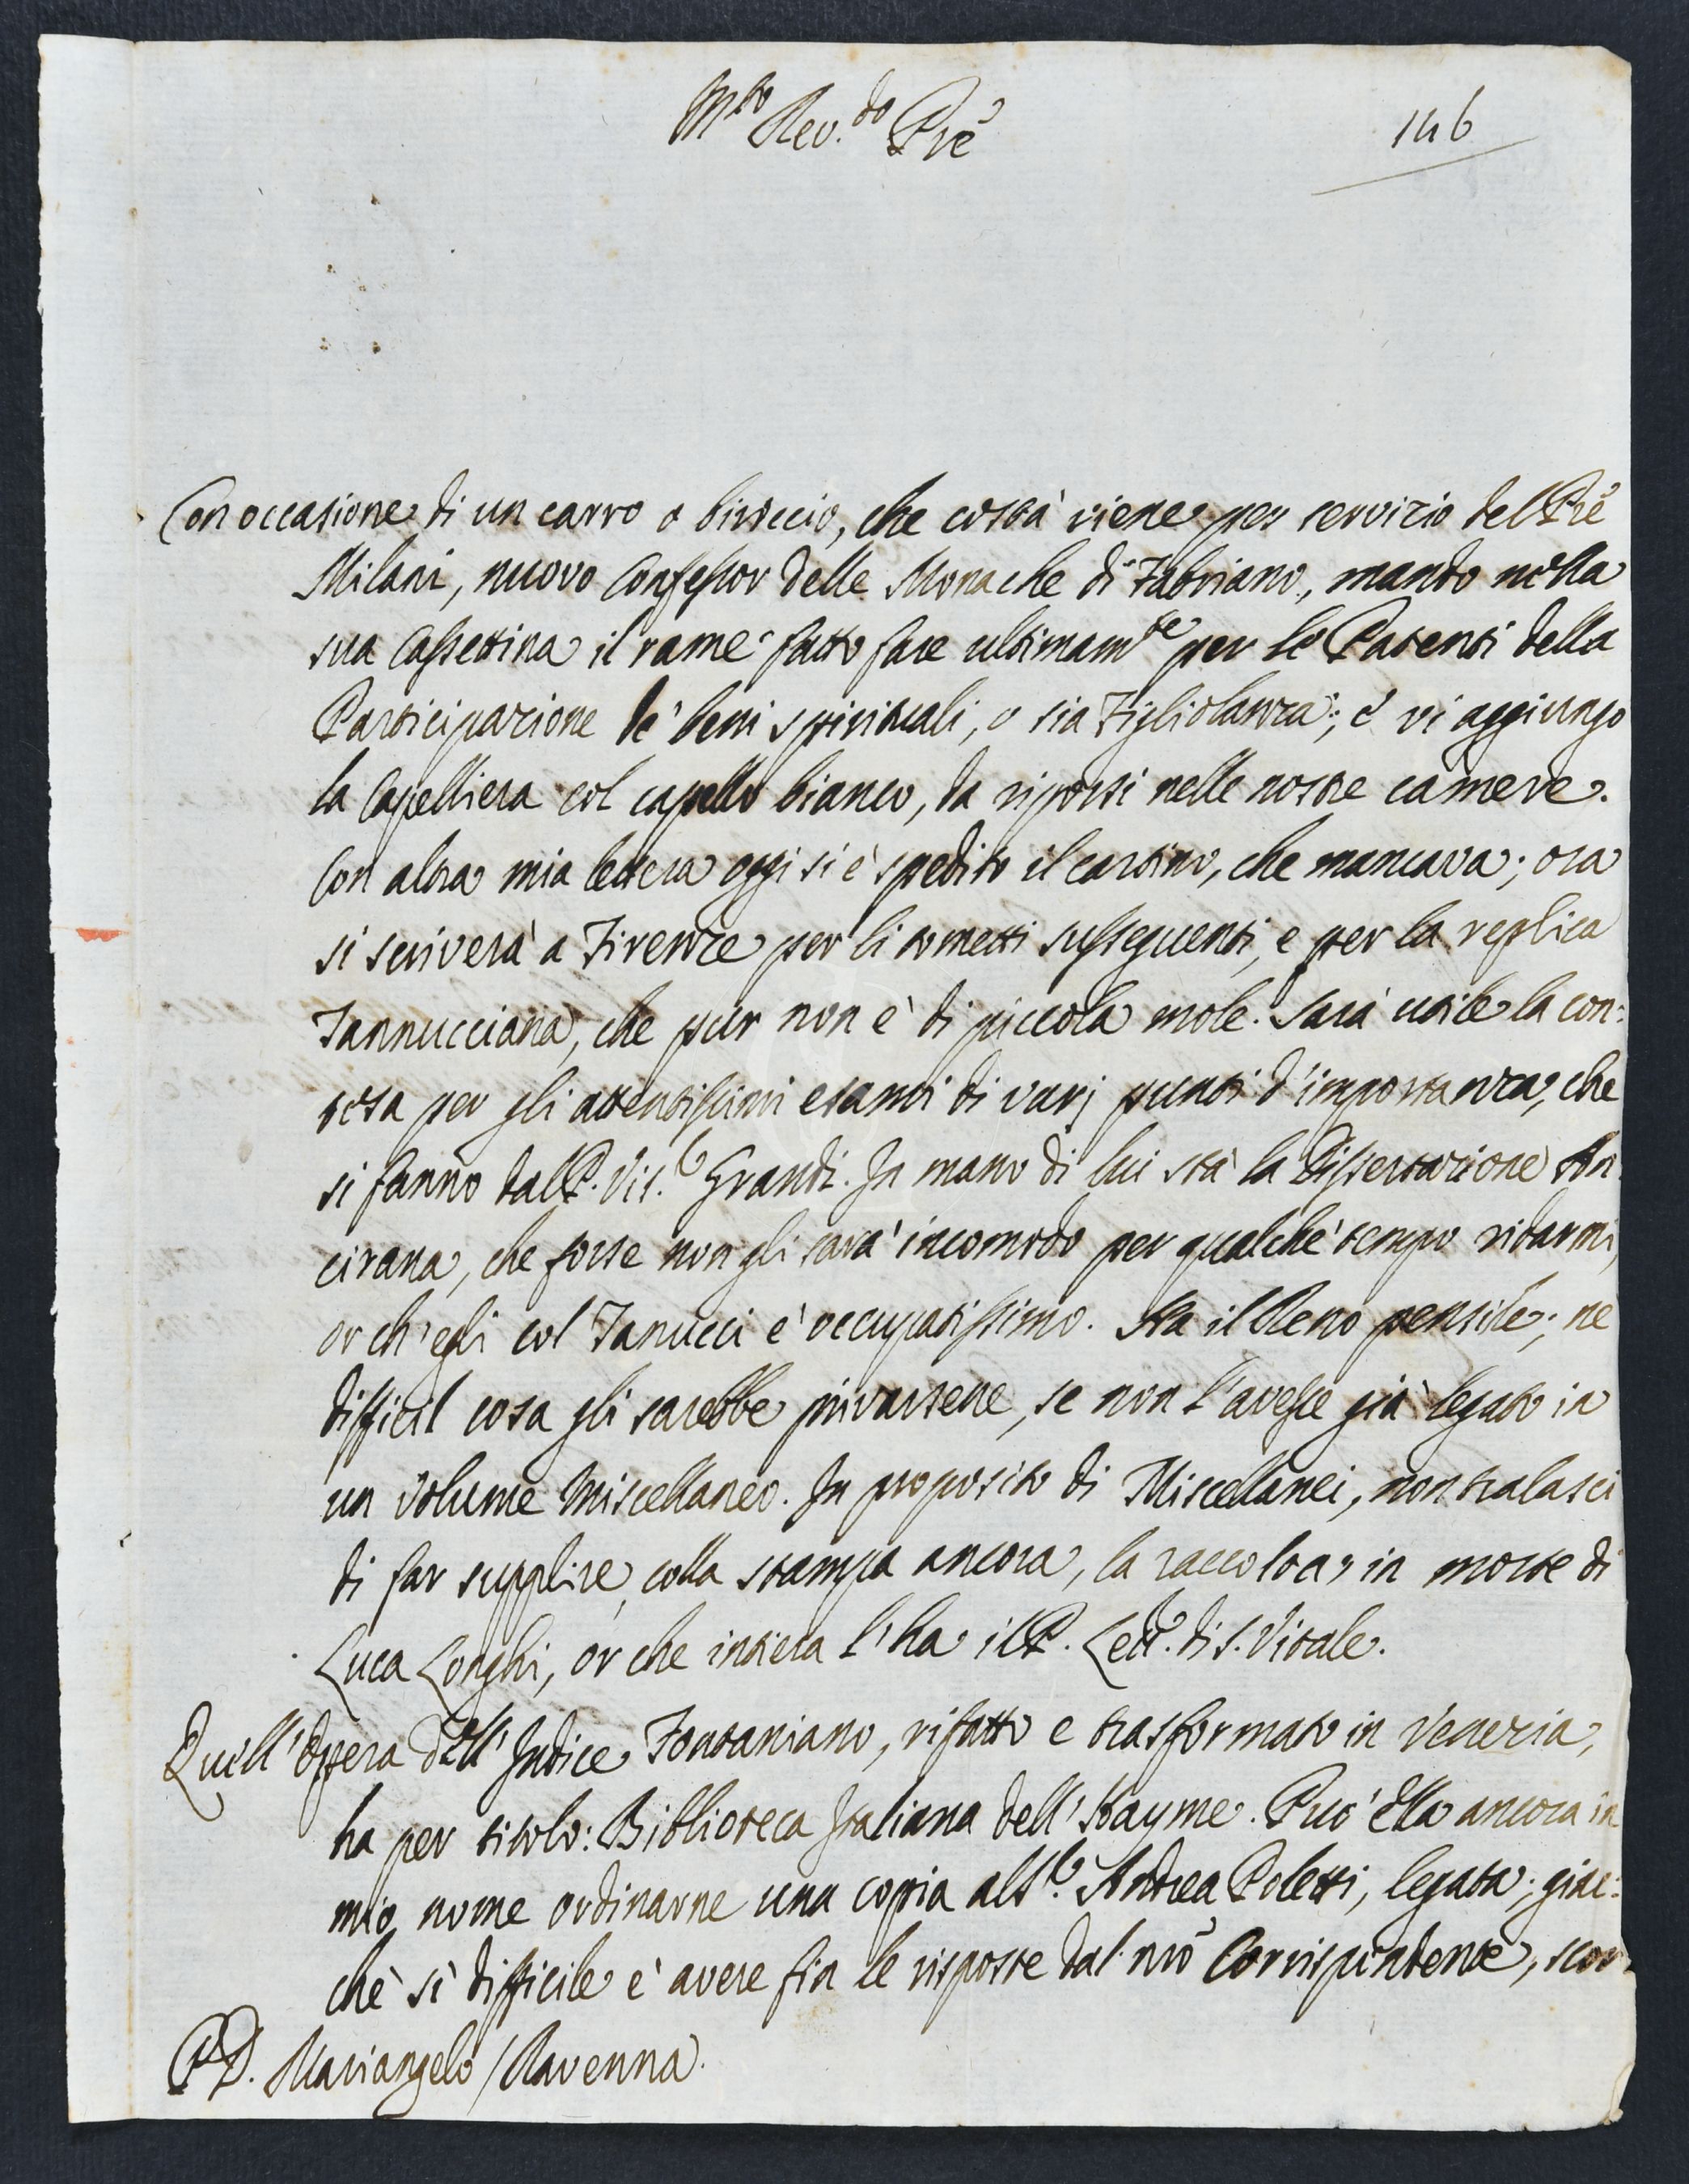 M.to Rev.do Prē
146
Con occasione di un carro o biroccio, che costà viene per servizio del Prē
Milani, nuovo Confessor delle Monache di Fabriano, mando nella
sua Cassettina il rame fatto fare ultimam.te per le Patenti della
Participazione de' beni spirituali, o sia Figliolanza; e vi aggiungo
la Capelliera col capello bianco, da riporsi nelle nostre camere.
Con altra mia lettera oggi si è spedito il cartino, che mancava; ora
si scriverà a Firenze per li tometti susseguenti, e per la replica
Tannucciana, che pur non è di piccola mole. Sarà utile la con:
tesa per gli attentissimi esami di varj punti d'importanza, che
si fanno dal P. Vis.e Grandi. In mano di lui stà la Dissertazione An
cirana, che forse non gli sarà incomodo per qualche tempo ridarmi,
or ch'egli col Tanucci è occupatissimo. Ha il Reno pensile; ne
difficil cosa gli sarebbe privarsene, se non l'avesse già legato in
un Volume Miscellaneo. In proposito di Miscellanei, non tralasci
di far supplire, colla stampa ancora, la raccolta, in morte di
Luca Longhi, or che intiera l'ha il P. Lett.e di S. Vitale.
Quell'Opera dell'Indice Fontaniano, rifatto e trasformato in Venezia,
ha per titolo: Biblioteca Italiana dell'Hayme. Può Ella ancora in
mio nome ordinarne una copia al S.e Andrea Poletti, legata; giac:
chè sì difficile è avere fin le risposte dal nrō Corrispondente,
P. D. Mariangelo / Ravenna.